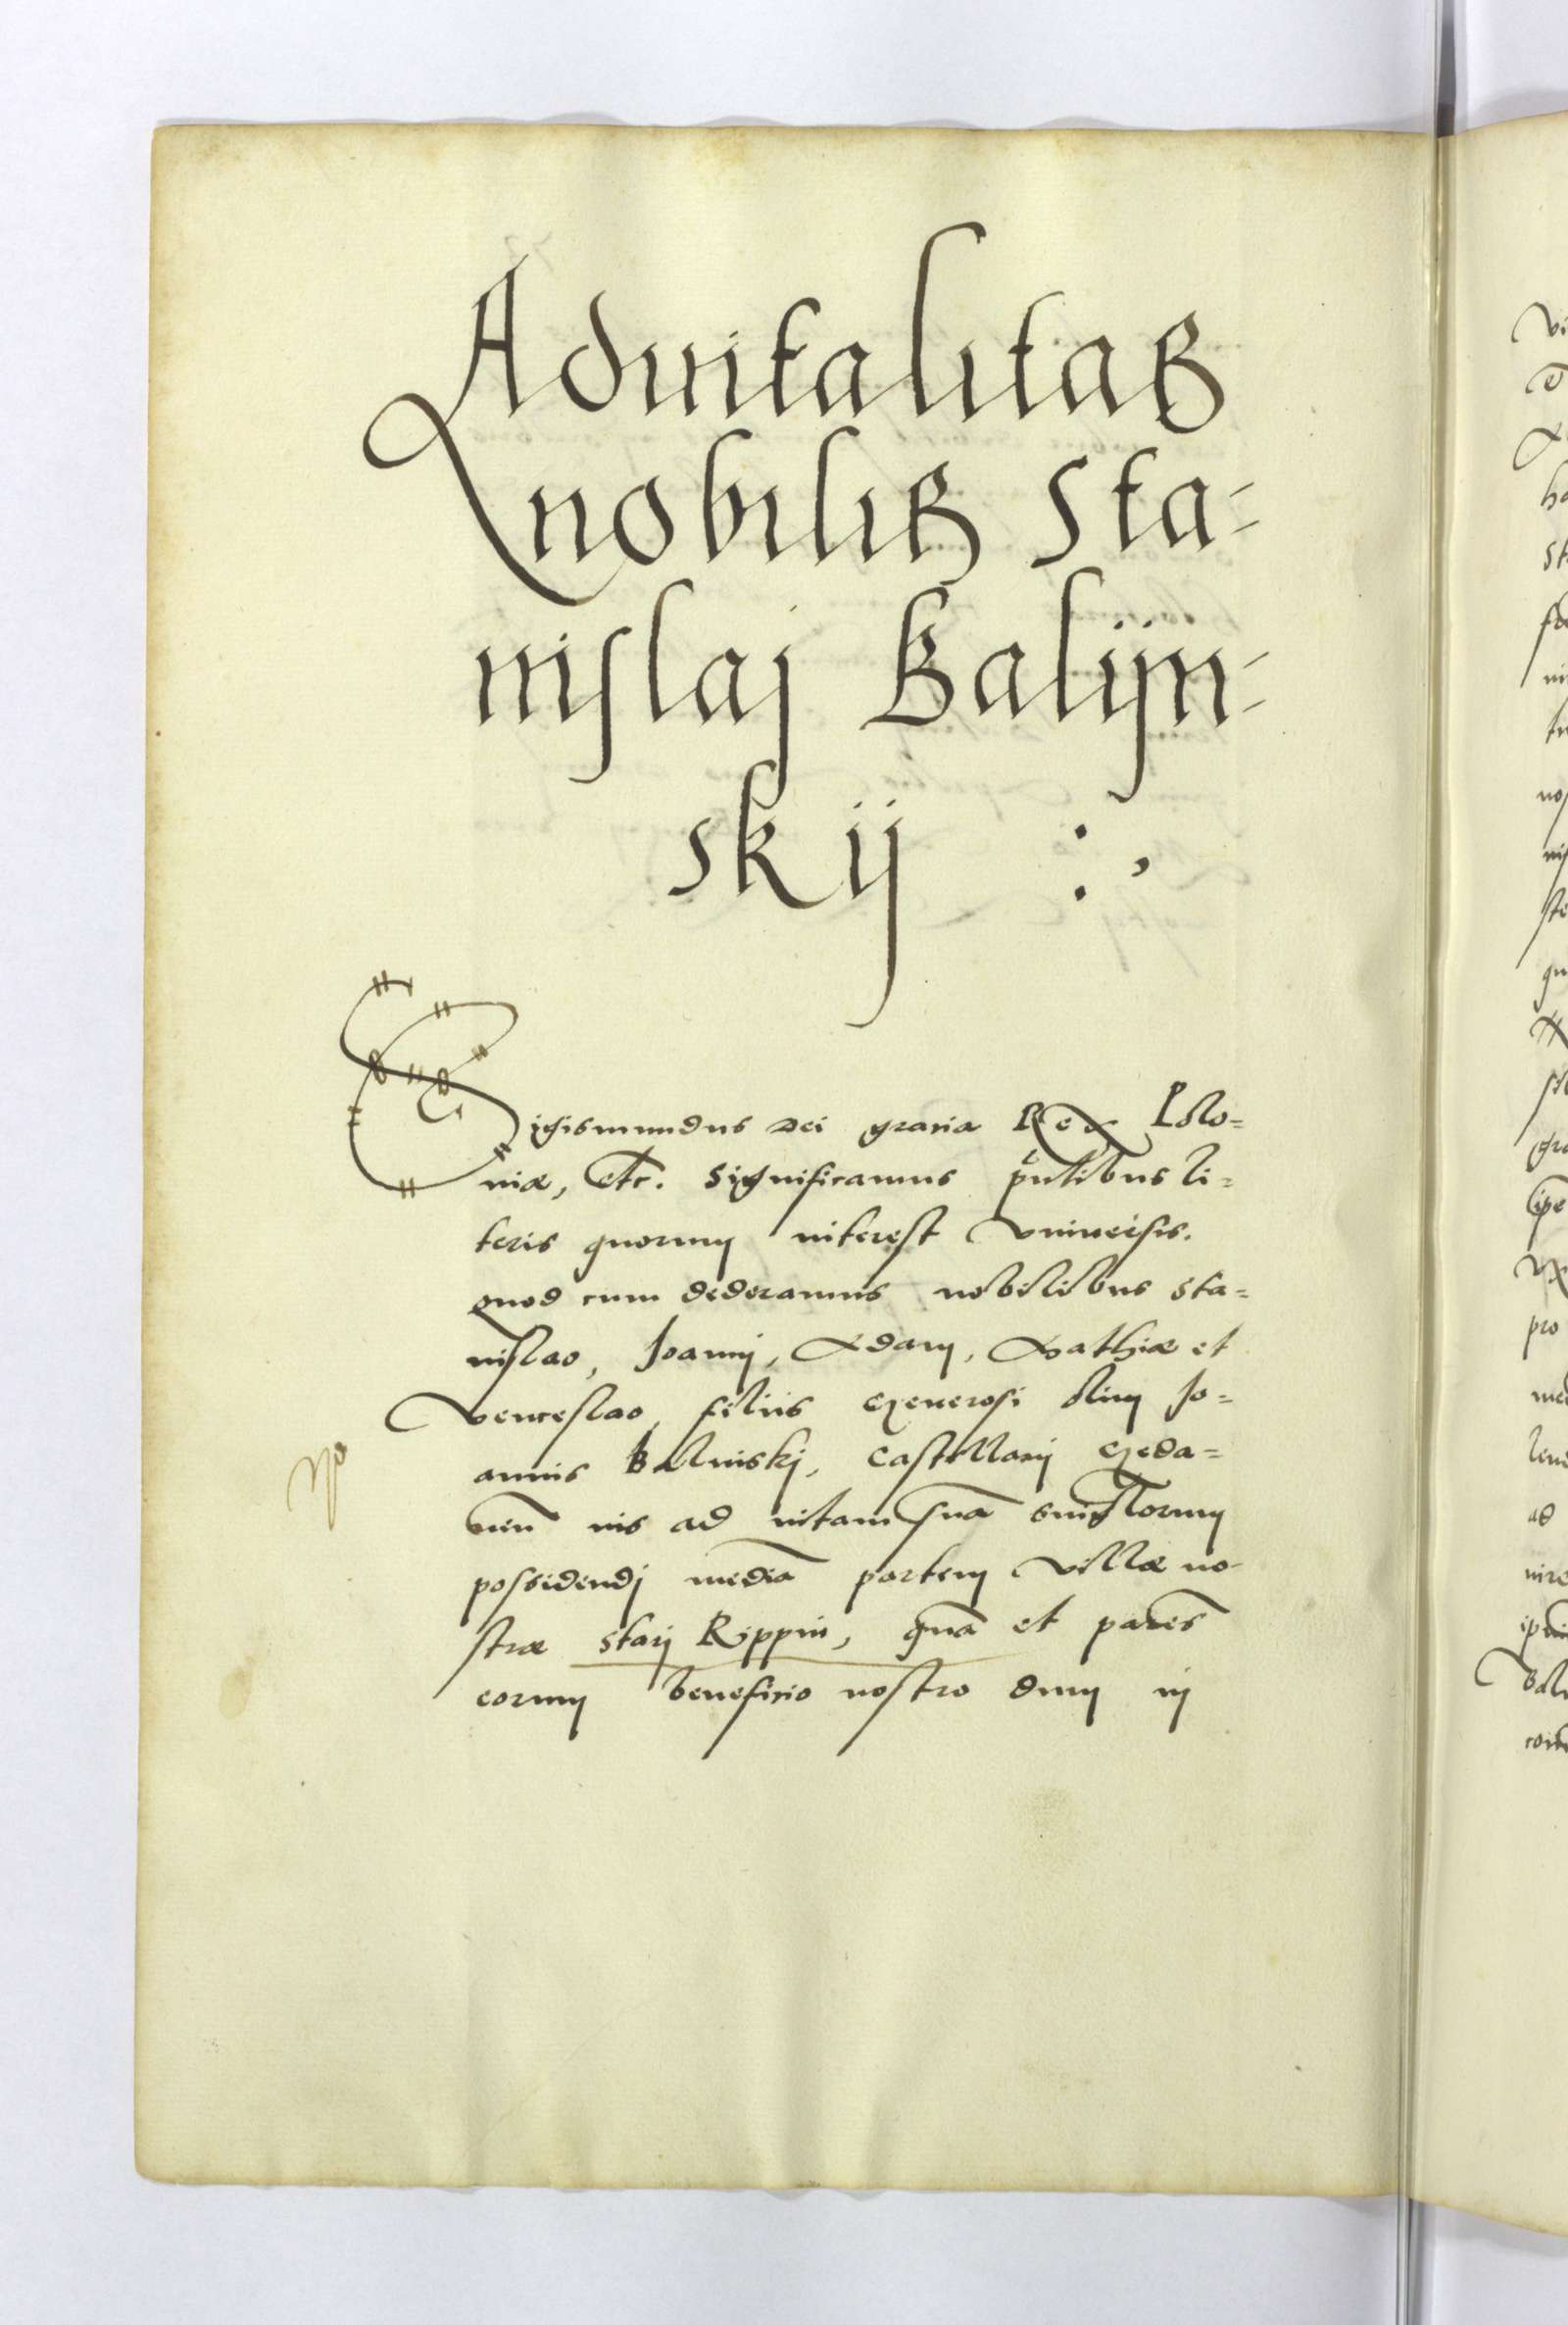 Aduitalitas
nobilis Sta-
nislaj Balijn-
skij :,
Sigismundus Dei gracia Rex Polo=
niæ, etc. Significamus pñtibus li=
teris quorum interest Vniuersis.
quod cum dederamus nobilibus Sta=
nislao, Joannj, Adam, Mathiæ et
Venceslao, filijs Generosi olim Jo=
annis Balinskj, Castellanj Geda=
nen̄ ius ad vitam suā singulorum
possidendj mediā partem Villæ no-
stræ Starj Rippin, quā et paren̄s
eorum beneficio nostro dum in